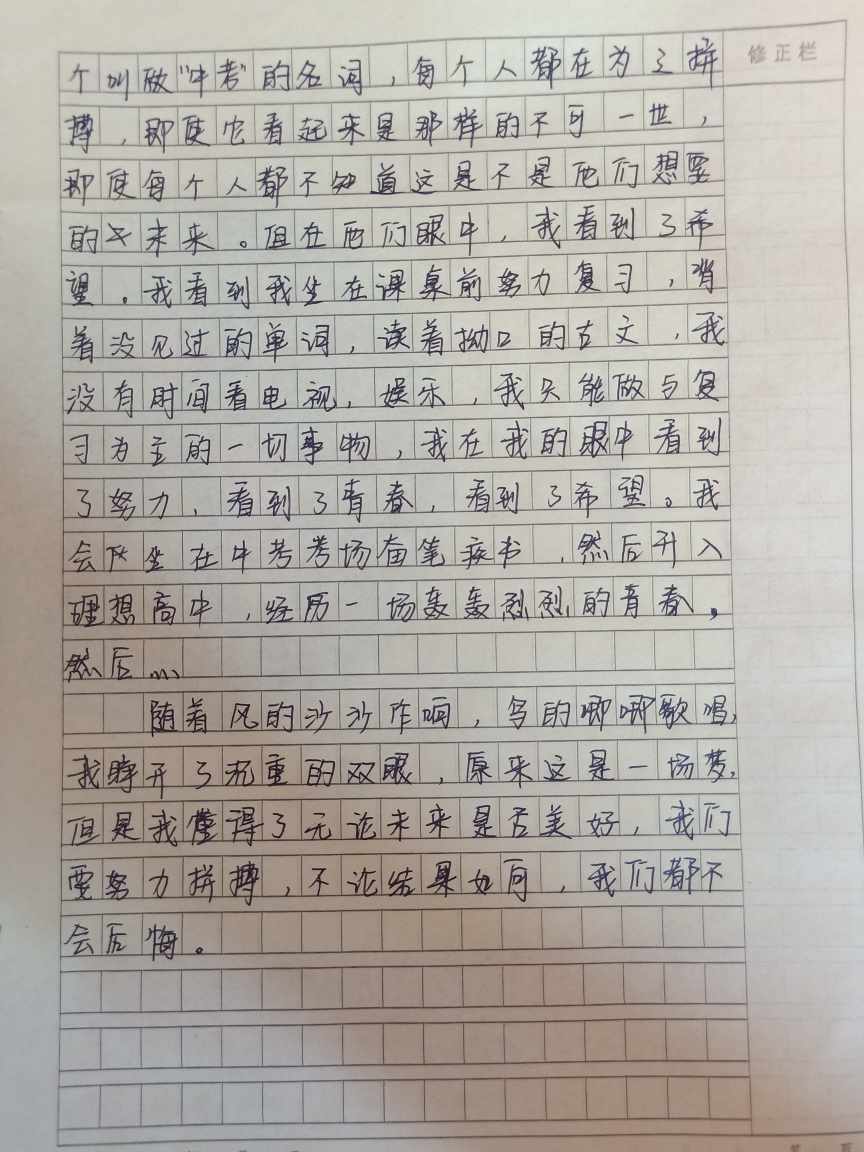 修正栏
个叫做“中考”的名词，每个人都在为之拼
搏，即使它看起来是那样的不可一世，
即使每个人都不知道这是不是他们想要
的未来。但在他们眼中，我看到了希
望。我看到我坐在课桌前努力复习，背
着没见过的单词，读着拗口的古文，我
没有时间看电视，娱乐，我只能做与复
习为主的一切事物，我在我的眼中看到
了努力，看到了青春，看到了希望。我
会坐在中考考场奋笔疾书，然后升入
理想高中，经历一场轰轰烈烈的青春，
然后……
随着风的沙沙作响，鸟的唧唧歌唱，
我睁开了沉重的双眼，原来这是一场梦，
但是我懂得了无论未来是否美好，我们
要努力拼搏，不论结果如何，我们都不
会后悔。